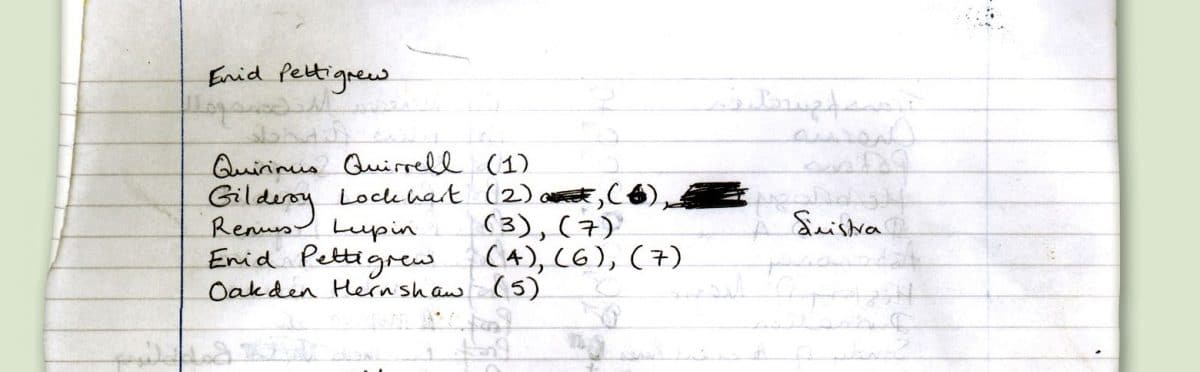 Enid Pettigrew
Quirinus Quirrell (1)
Gilderoy Lockhart (2) , (6),
Remus Lupin (3), (7)
Sinistra
Enid Pettigrew (4), (6), (7)
Oakden Hernshaw (5)